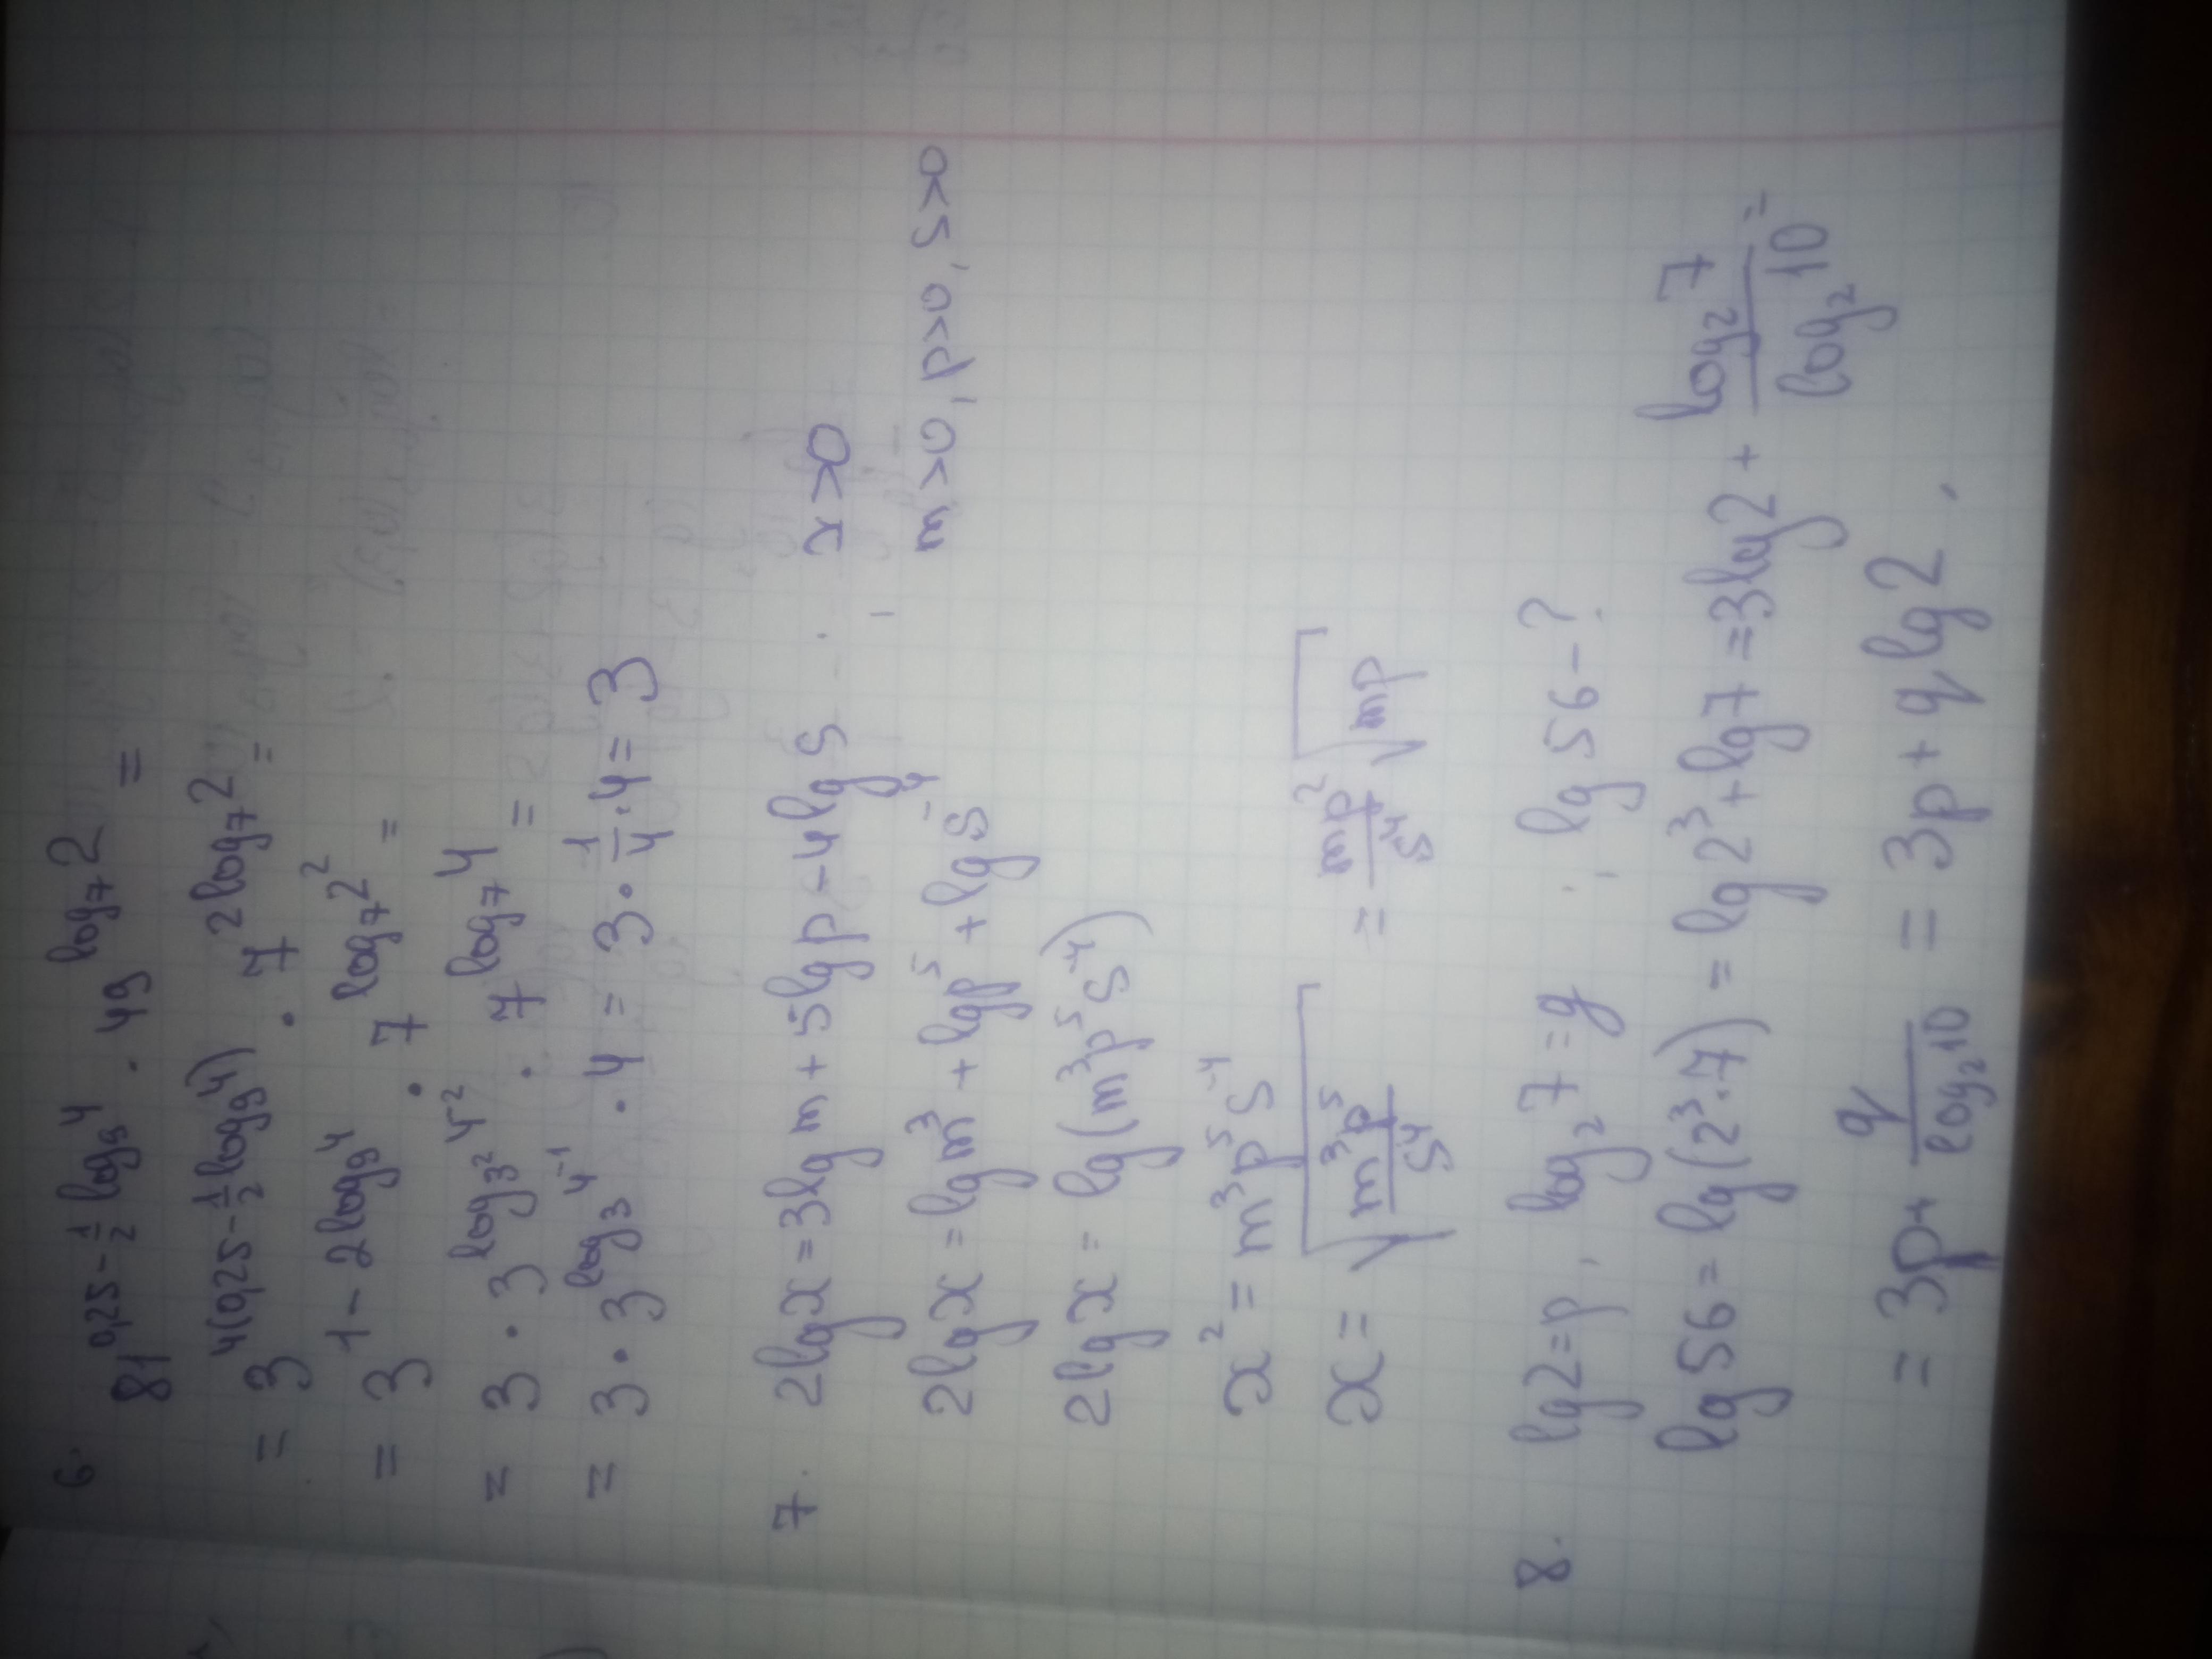 6.
81^{0,25-\frac{1}{2}log_9 4} · 49^{log_7 2} =
= 3^{4(0,25-\frac{1}{2}log_9 4)} · 7^{2log_7 2} =
= 3^{1-2log_9 4} · 7^{log_7 2^2} =
= 3 · 3^{log_{3^2} 4^2} · 7^{log_7 4} =
= 3 · 3^{log_3 4^{-1}} · 4 = 3 · \frac{1}{4} · 4 = 3
7. 2lg x = 3lg m + 5lg p - 4lg s x>0
2lg x = lg m^3 + lg p^5 + lg s^{-4} m>0, p>0, s>0
2lg x = lg(m^3 p^5 s^{-4})
x^2 = m^3 p^5 s^{-4}
x = \sqrt{\frac{m^3 p^5}{s^4}} = \frac{mp^2}{s^4} \sqrt{mp}
8. lg2=p, log_2 7=q lg 56-?
lg 56 = lg(2^3·7) = lg 2^3 + lg 7 = 3lg 2 + \frac{log_2 7}{log_2 10} =
= 3p + \frac{q}{log_2 10} = 3p + q lg 2.